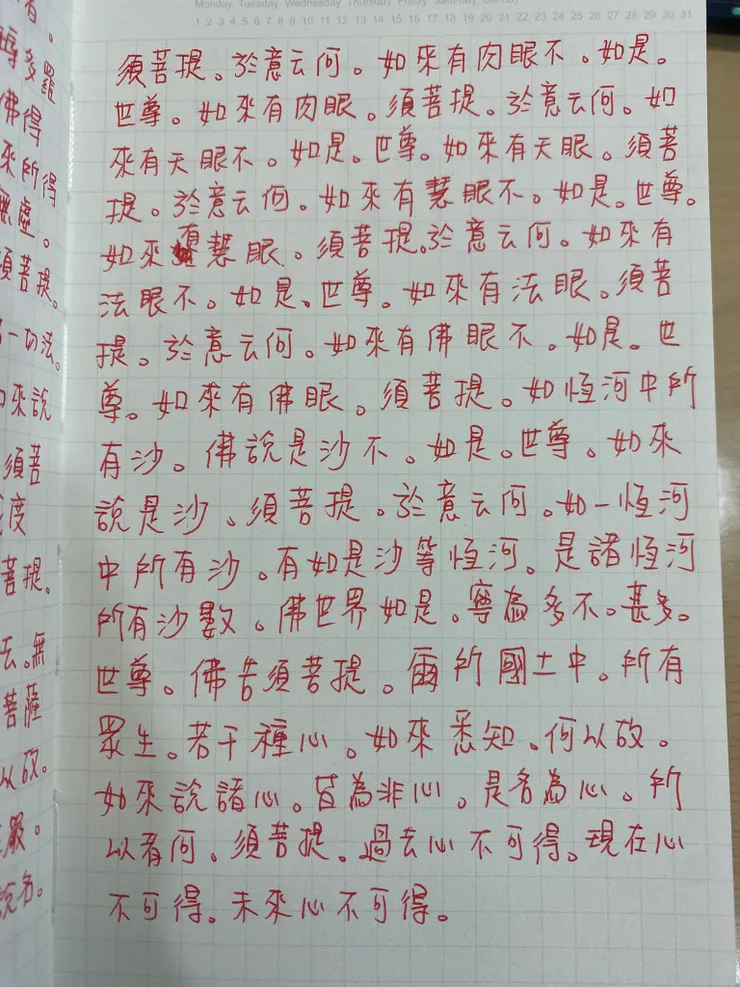 Monday Tuesday Wednesday Thursday Friday Saturday Sunday
1 2 3 4 5 6 7 8 9 10 11 12 13 14 15 16 17 18 19 20 21 22 23 24 25 26 27 28 29 30 31
須菩提。於意云何。如來有肉眼不。如是。
世尊。如來有肉眼。須菩提。於意云何。如
來有天眼不。如是。世尊。如來有天眼。須菩
提。於意云何。如來有慧眼不。如是。世尊。
如來有慧眼。須菩提。於意云何。如來有
法眼不。如是。世尊。如來有法眼。須菩
提。於意云何。如來有佛眼不。如是。世
尊。如來有佛眼。須菩提。如恒河中所
有沙。佛說是沙不。如是。世尊。如來
說是沙。須菩提。於意云何。如一恒河
中所有沙。有如是沙等恒河。是諸恒河
所有沙數。佛世界如是。寧為多不。甚多。
世尊。佛告須菩提。爾所國土中。所有
眾生。若干種心。如來悉知。何以故。
如來說諸心。皆為非心。是名為心。所
以者何。須菩提。過去心不可得。現在心
不可得。未來心不可得。
者。
多羅
佛得
來所得
無虛。
須菩提。
一切法。
來說
須菩
度
菩提。
法。無
菩薩
以故。
嚴。
說名。